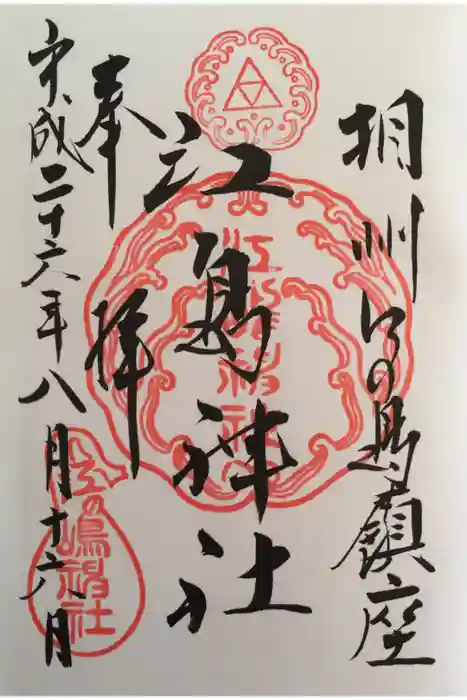 相州江の島鎮座
江島神社
奉拝
平成二十六年八月十六日
江の嶋神社